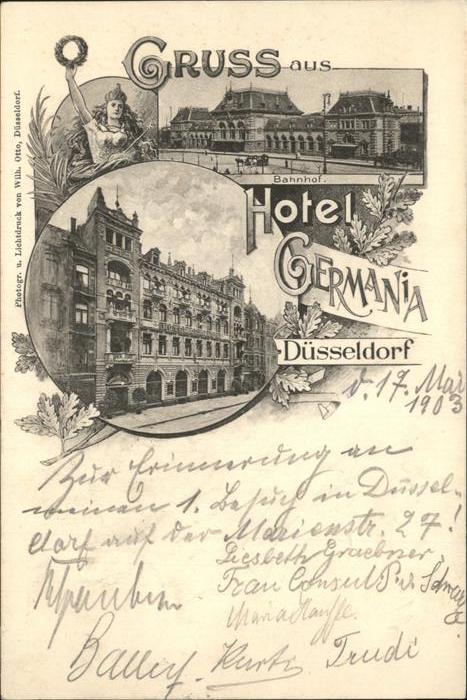 GRUSS aus
Bahnhof.
Hotel
GERMANIA
Düsseldorf
Photogr. u. Lichtdruck von Wilh. Otto, Düsseldorf.
d. 17. Mai
1903
Zur Erinnerung an
meinen 1. Besuch in Düssel-
dorf auf der Marienstr. 27!
Liesbeth
Frau Consul P. v.
Maria
Kurt Trudi